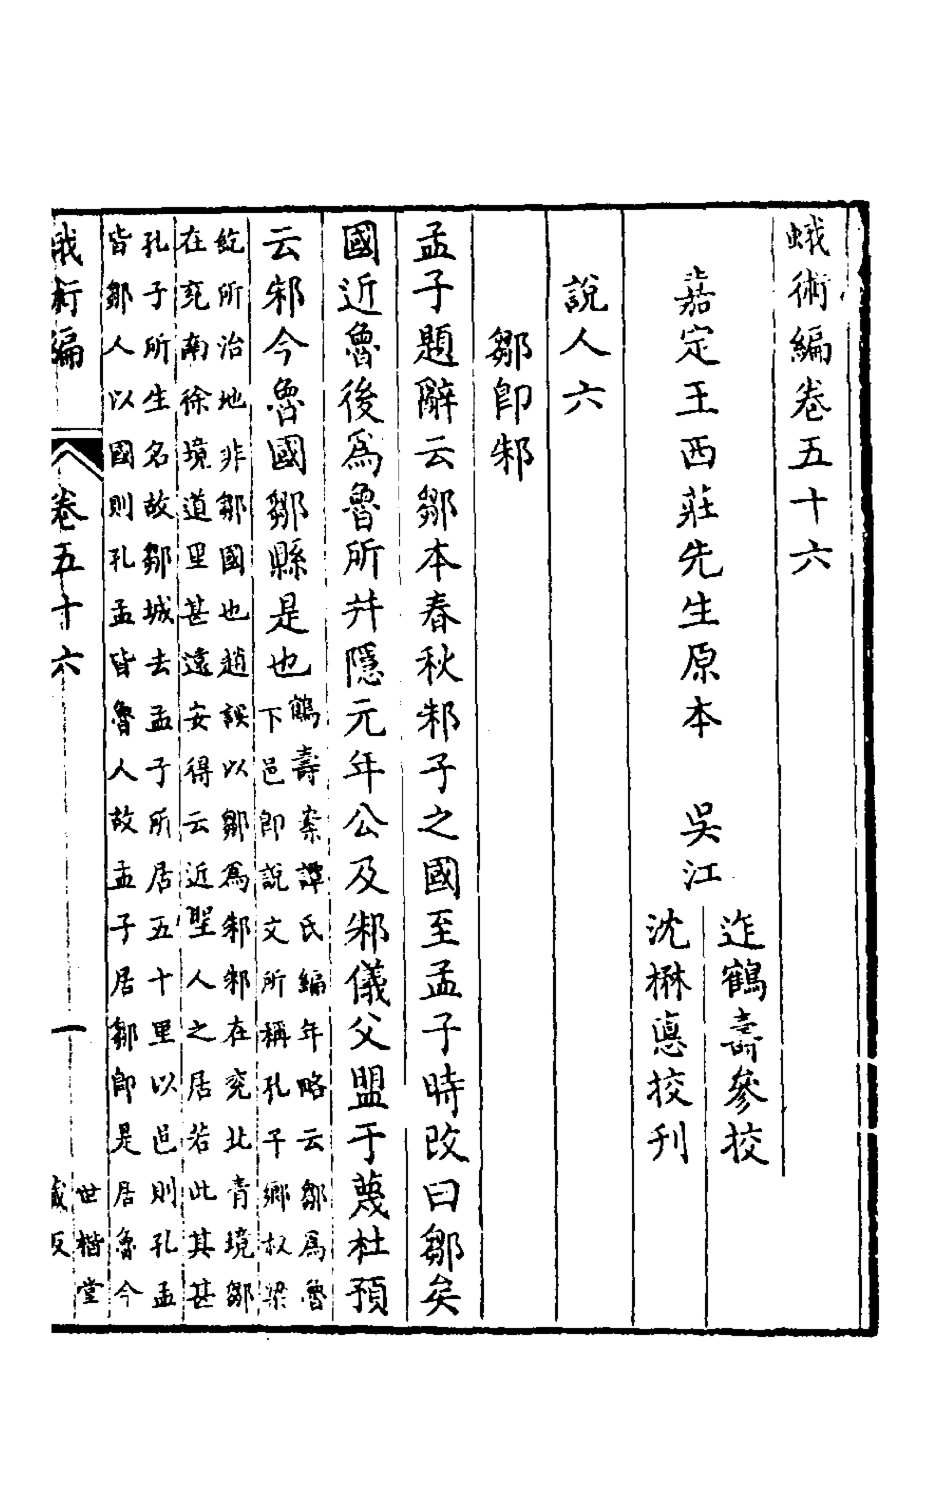 蛾術編卷五十六
嘉定王西莊先生原本　吳江
迮鶴壽參挍
沈楙悳挍刋
說人六
鄒卽邾
孟子題辭云鄒本春秋邾子之國至孟子時改曰鄒矣
國近魯後爲魯所幷隱元年公及邾儀父盟于蔑杜預
云邾今魯國鄒縣是也
鶴壽案譚氏編年略云鄒爲魯
下邑卽說文所稱孔子鄉叔梁
紇所治地非鄒國也趙誤以鄒爲邾邾在兖北青境鄒
在兖南徐境道里甚遠安得云近聖人之居若此其甚
孔子所生名故鄒城去孟子所居五十里以邑則孔孟
皆鄒人以國則孔孟皆魯人故孟子居鄒卽是居魯今
蛾術編
卷五十六
一
世楷堂
藏板